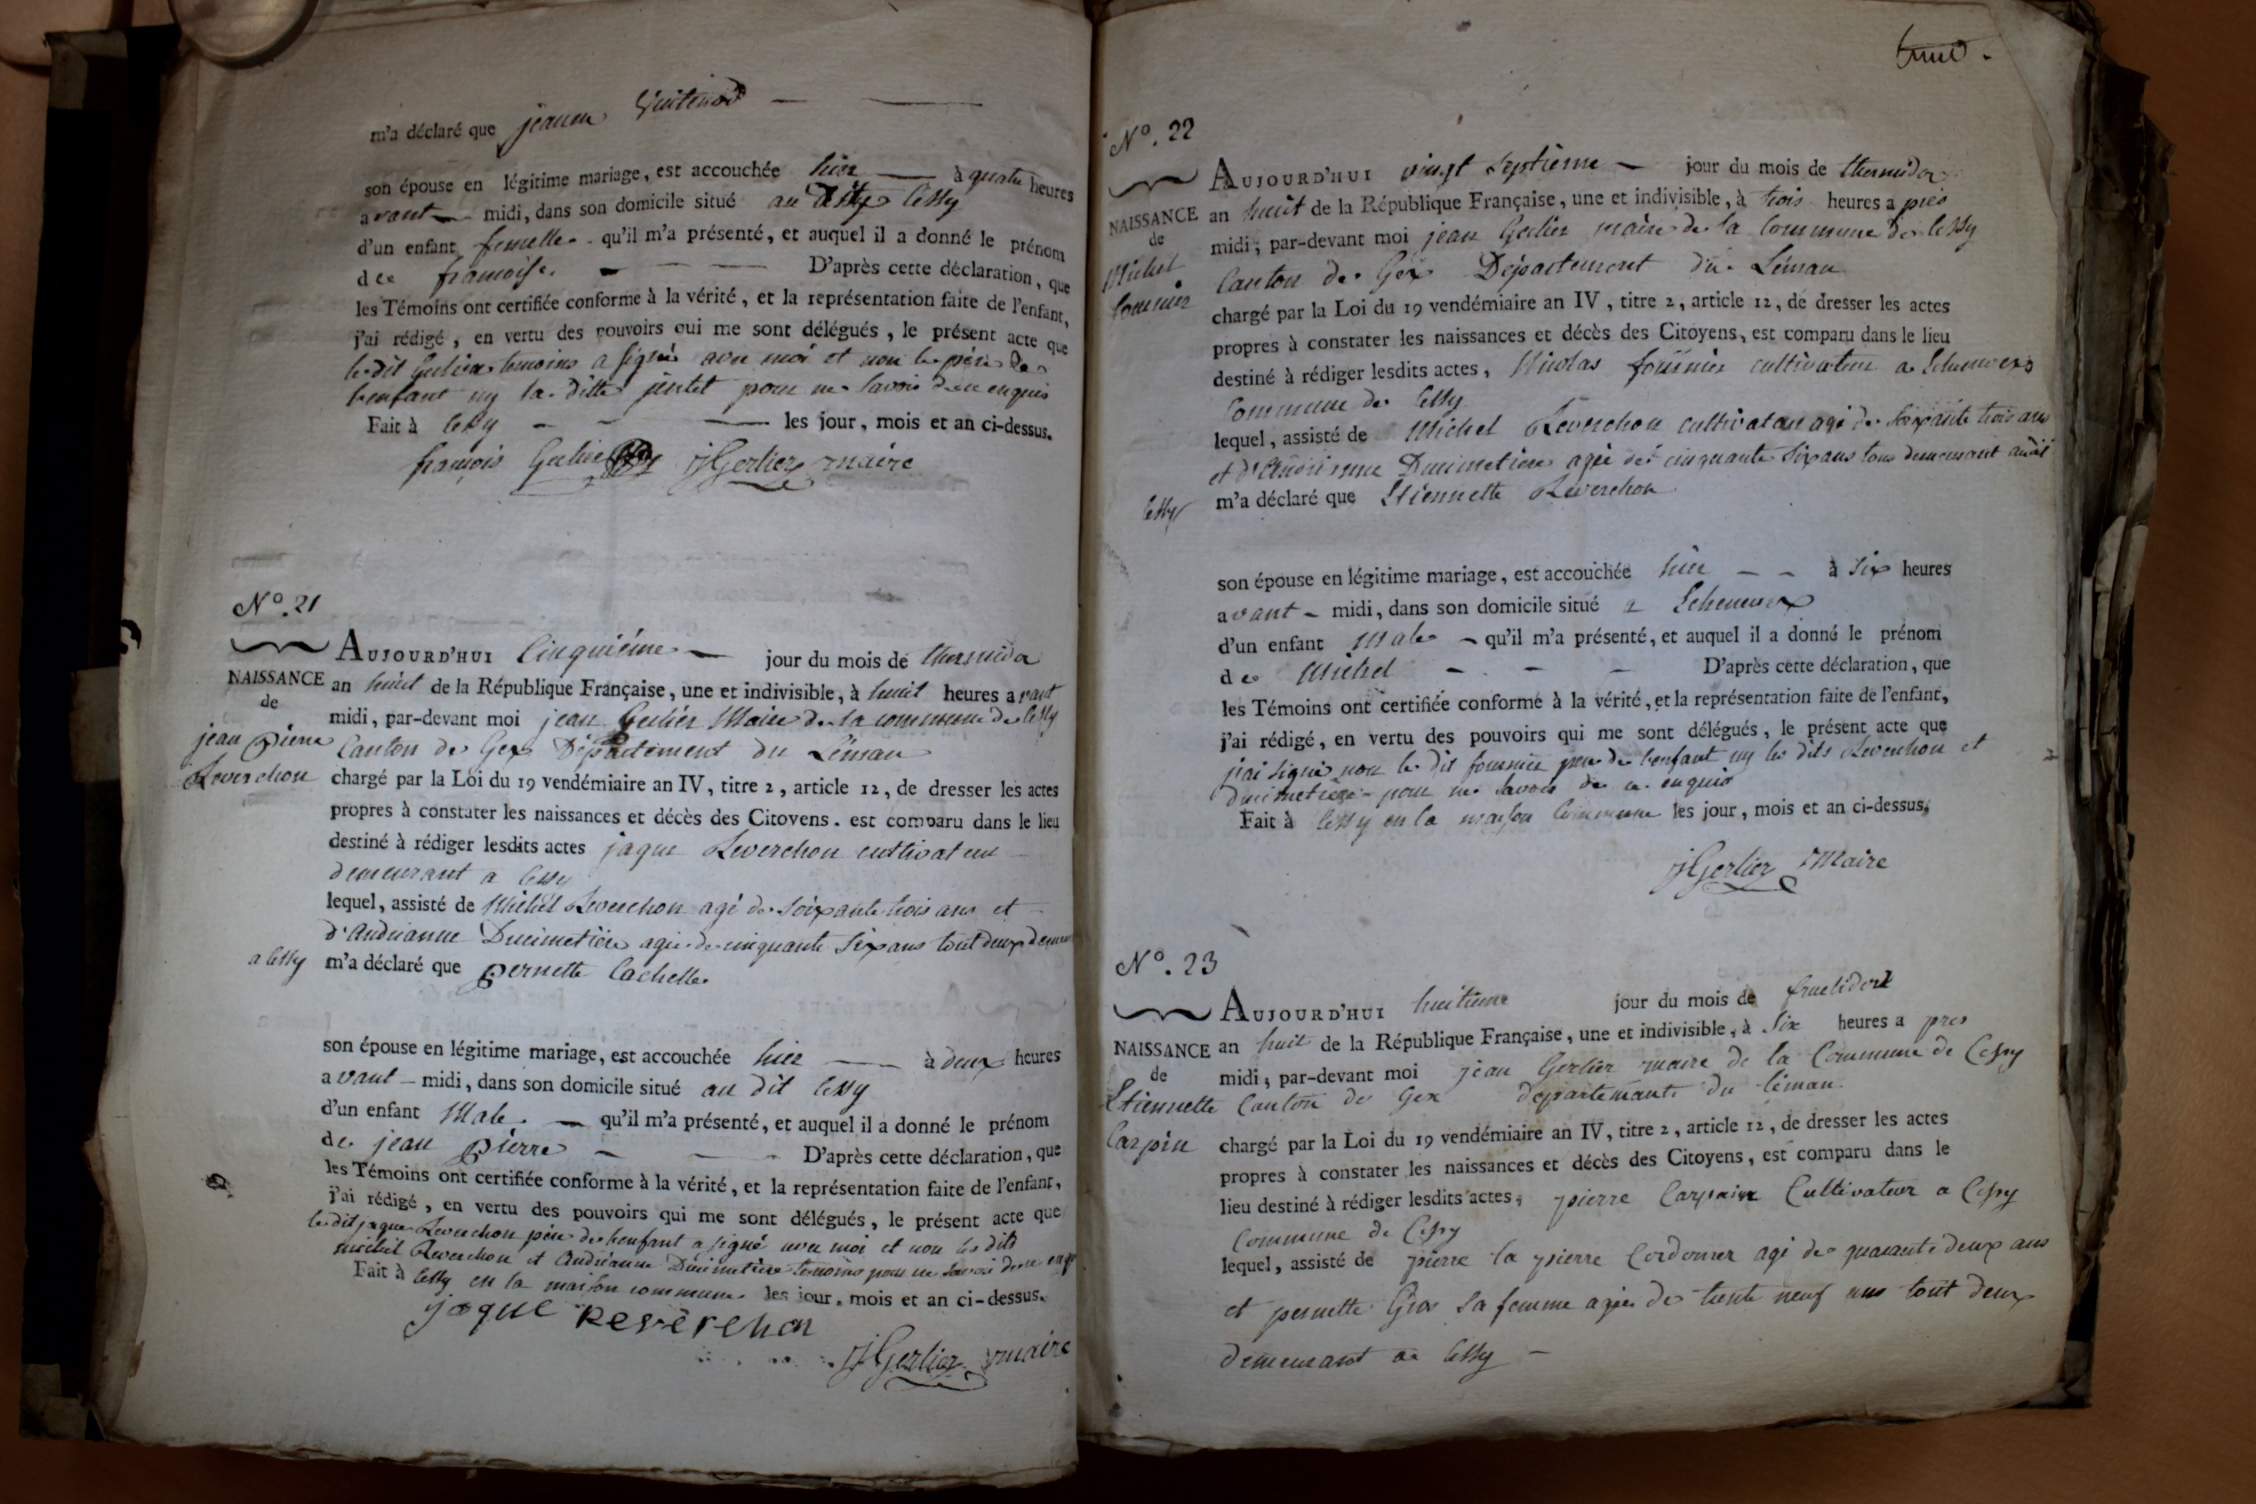 m'a déclaré que jeanne
son épouse en légitime mariage, est accouchée hier — à quatre heures
avant — midi, dans son domicile situé au dit Cessy
d'un enfant femelle qu'il m'a présenté, et auquel il a donné le prénom
de francoise — — — D'après cette déclaration, que
les Témoins ont certifiée conforme à la vérité, et la représentation faite de l'enfant,
j'ai rédigé, en vertu des pouvoirs qui me sont délégués, le présent acte que
le dit Gerlier temoins a signé avec moi et non le père de
l'enfant ny la ditte pour ne savoir de ce enquis
Fait à Cessy — — — les jour, mois et an ci-dessus.
françois Gerlier JGerlier maire
N°. 21
NAISSANCE
de
jean pierre
Reverchon
AUJOURD'HUI Cinquiéme — jour du mois de thermidor
an huit de la République Française, une et indivisible, à huit heures avant
midi, par-devant moi jean Gerlier Maire de la commune de Cessy
Canton de Gex Département du Léman
chargé par la Loi du 19 vendémiaire an IV, titre 2, article 12, de dresser les actes
propres à constater les naissances et décès des Citoyens, est comparu dans le lieu
destiné à rédiger lesdits actes jaque Reverchon cultivateur
demeurant a Cessy
lequel, assisté de Michel Reverchon agé de soixante trois ans et
d'andrianne Ducimetière agée de cinquante six ans tout deux demeurant
a Cessy
m'a déclaré que pernette Lachelle
son épouse en légitime mariage, est accouchée hier — à deux heures
avant — midi, dans son domicile situé au dit Cessy
d'un enfant Male — qu'il m'a présenté, et auquel il a donné le prénom
de jean pierre — — D'après cette déclaration, que
les Témoins ont certifiée conforme à la vérité, et la représentation faite de l'enfant,
j'ai rédigé, en vertu des pouvoirs qui me sont délégués, le présent acte que
le dit jaque Reverchon père de l'enfant a signé avec moi et non les dits
michel Reverchon et Andrianne Ducimetière temoins pour ne savoir de ce enquis
Fait à Cessy en la maison commune les jour, mois et an ci-dessus.
jaque Reverchon
JGerlier maire
N°. 22
NAISSANCE
de
Michel
fournier
AUJOURD'HUI vingt septieme — jour du mois de thermidor
an huit de la République Française, une et indivisible, à trois heures a près
midi, par-devant moi jean Gerlier maire de la Commune de Cessy
Canton de Gex Département du Léman
chargé par la Loi du 19 vendémiaire an IV, titre 2, article 12, de dresser les actes
propres à constater les naissances et décès des Citoyens, est comparu dans le lieu
destiné à rédiger lesdits actes, Nicolas fournier cultivateur a
Commune de Cessy
lequel, assisté de Michel Reverchon cultivateur agé de soixante trois ans
et d'andrianne Ducimetiere agée de cinquante six ans tous demeurant audit
Cessy
m'a déclaré que Etiennette Reverchon
son épouse en légitime mariage, est accouchée hier — — à six heures
avant — midi, dans son domicile situé a
d'un enfant Male — qu'il m'a présenté, et auquel il a donné le prénom
de Michel — — — D'après cette déclaration, que
les Témoins ont certifiée conforme à la vérité, et la représentation faite de l'enfant,
j'ai rédigé, en vertu des pouvoirs qui me sont délégués, le présent acte que
j'ai signé non le dit fournier pere de l'enfant ny les dits Reverchon et
Ducimetière pour ne savoir de ce enquis
Fait à Cessy en la maison Commune les jour, mois et an ci-dessus.
JGerlier Maire
N°. 23
NAISSANCE
de
Etiennette
Carpin
AUJOURD'HUI huitieme jour du mois de fructidor
an huit de la République Française, une et indivisible, à six heures a pres
midi, par-devant moi jean Gerlier maire de la Commune de Cessy
Canton de Gex departemant du léman
chargé par la Loi du 19 vendémiaire an IV, titre 2, article 12, de dresser les actes
propres à constater les naissances et décès des Citoyens, est comparu dans le
lieu destiné à rédiger lesdits actes, pierre Cultivateur a Cessy
Commune de Cessy
lequel, assisté de pierre la pierre Cordonier agé de quarante deux ans
et pernette Gros sa femme agée de trente neuf ans tout deux
demeurant a Cessy —